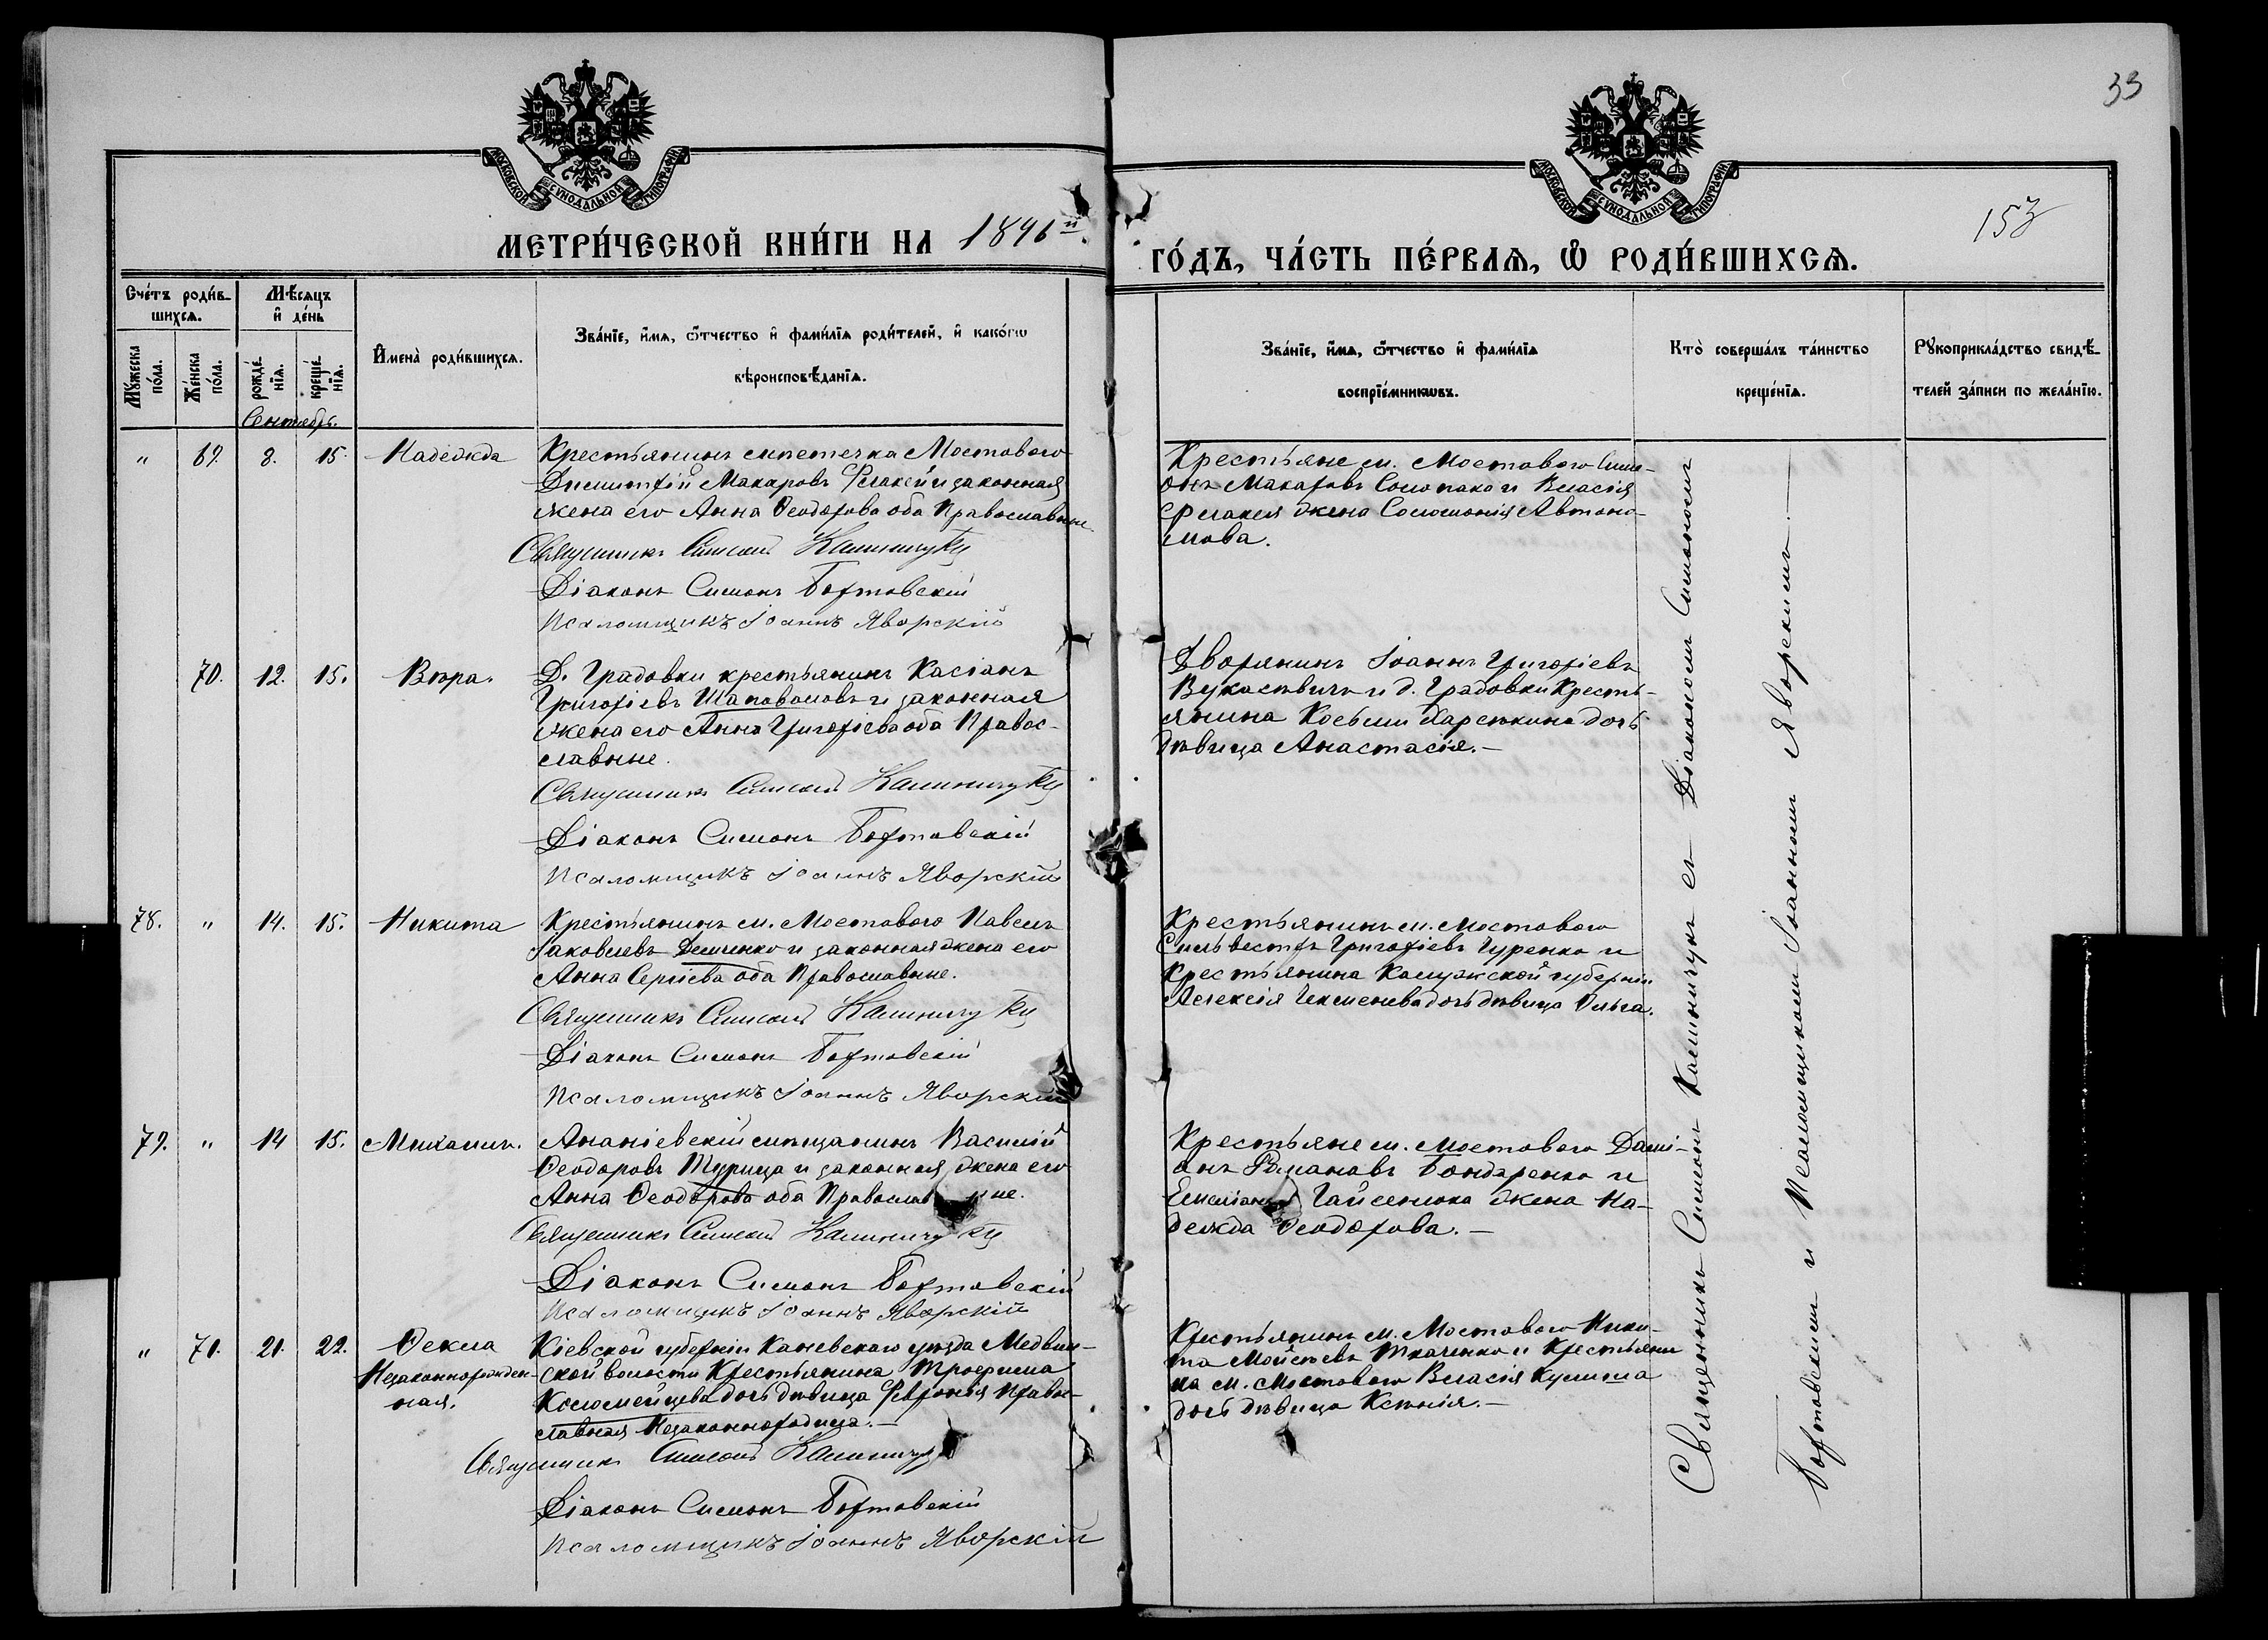 33
153
МОСКОВСКОЙ СѴНОДАЛЬНОЙ ТИПОГРАФІИ
МОСКОВСКОЙ СѴНОДАЛЬНОЙ ТИПОГРАФІИ
МЕТРИ́ЧЕСКОЙ КНИ́ГИ НА 1896й.
ГО́ДЪ, ЧА́СТЬ ПЕ́РВАѦ, Ѡ РОДИ́ВШИХСѦ.
Счéтъ роди́в-
шихсѧ.
Мꙋ́жеска
по́ла.
Же́нска
по́ла.
Мѣ́сѧцъ
и҆ де́нь
рожде́-
нїѧ.
креще́-
нїѧ.
И҆мена̀ роди́вшихсѧ.
Зва́нїе, и҆́мѧ, ѻ҆́тчество и҆ фами́лїѧ роди́телей, и҆ како́гѡ
вѣроисповѣ́данїѧ.
Зва́нїе, и҆́мѧ, ѻ҆́тчество и҆ фами́лїѧ
воспрїе́мникѡвъ.
Кто̀ соверша́лъ та́инство
креще́нїѧ.
Рꙋкоприкла́дство свидѣ́-
телей за́писи по жела́нїю.
Сентябрь.
" 69. 8. 15. Надежда
Крестьянинъ мѣстечка Мостового
Димитрій Макаровъ и законная
жена его Анна Ѳеодорова оба Православные
Священникъ Симеонъ Калиничукъ
Діаконъ Симонъ Бортовскій
Псаломщикъ Іоаннъ Яворскій
Крестьяне м. Мостового Сим-
онъ Макаровъ и Власія
жена Соломонія Автоно-
мова.
70. 12. 15. Вѣра.
Д. Градовки крестьянинъ Касіанъ
Григоріевъ Шаповаловъ и законная
жена его Анна Григоріева оба Правос-
лавные.
Священникъ Симеонъ Калиничукъ
Діаконъ Симонъ Бортовскій
Псаломщикъ Іоаннъ Яворскій
Дворянинъ Іоаннъ Григоріевъ
и д. Градовки Кресть-
янина Косьмы дочь
дѣвица Анастасія.—
78. " 14. 15. Никита
Крестьянинъ м. Мостового Павелъ
Іаковлевъ Демченко и законная жена его
Анна Сергіева оба Православные.
Священникъ Симеонъ Калиничукъ
Діаконъ Симонъ Бортовскій
Псаломщикъ Іоаннъ Яворскій
Крестьянинъ м. Мостового
Сильвестръ Григоріевъ Гуренко и
Крестьянина Калужской губерніи
Алексія дочь дѣвица Ольга.
79. " 14 15. Михаилъ.
Ананіевскій мѣщанинъ Василій
Ѳеодоровъ Турица и законная жена его
Анна Ѳеодорова оба Православные.
Священникъ Симеонъ Калиничукъ
Діаконъ Симонъ Бортовскій
Псаломщикъ Іоаннъ Яворскій
Крестьяне м. Мостового Дамі-
анъ Романовъ Бондаренко и
Емеліана Гайсенюка жена На-
дежда Ѳеодорова.—
" 71. 21. 22. Ѳекла
Незаконнорожден-
ная.
Кіевской губерніи Каневскаго уѣзда Медвин-
ской волости Крестьянина Трофима
Коломейцева дочь дѣвица Февронія Право-
славная Незаконнородица.—
Священникъ Симеонъ Калиничукъ
Діаконъ Симонъ Бортовскій
Псаломщикъ Іоаннъ Яворскій
Крестьянинъ м. Мостового Ники-
та Мойсеевъ Ткаченко и Крестьяни
на м. Мостового Власія Кулиша
дочь дѣвица Ксенія.—
Священникъ Симеонъ Калиничукъ съ Діакономъ Симономъ
Бортовскимъ и Псаломщикомъ Іоанномъ Яворскимъ.—